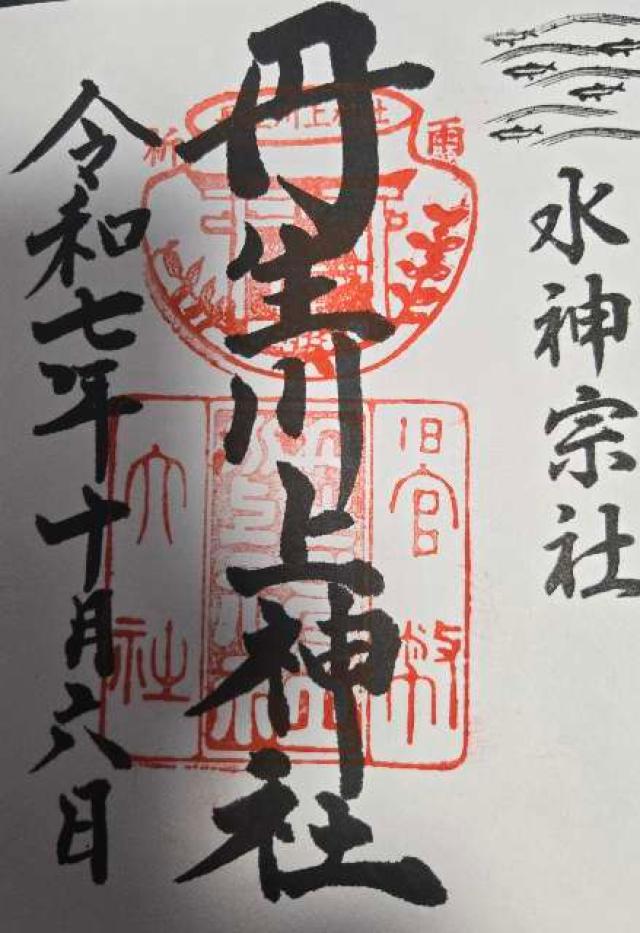 水神宗社
丹生川上神社
令和七年十月六日
雨
祈
丹生川上神社
旧官幣
大社